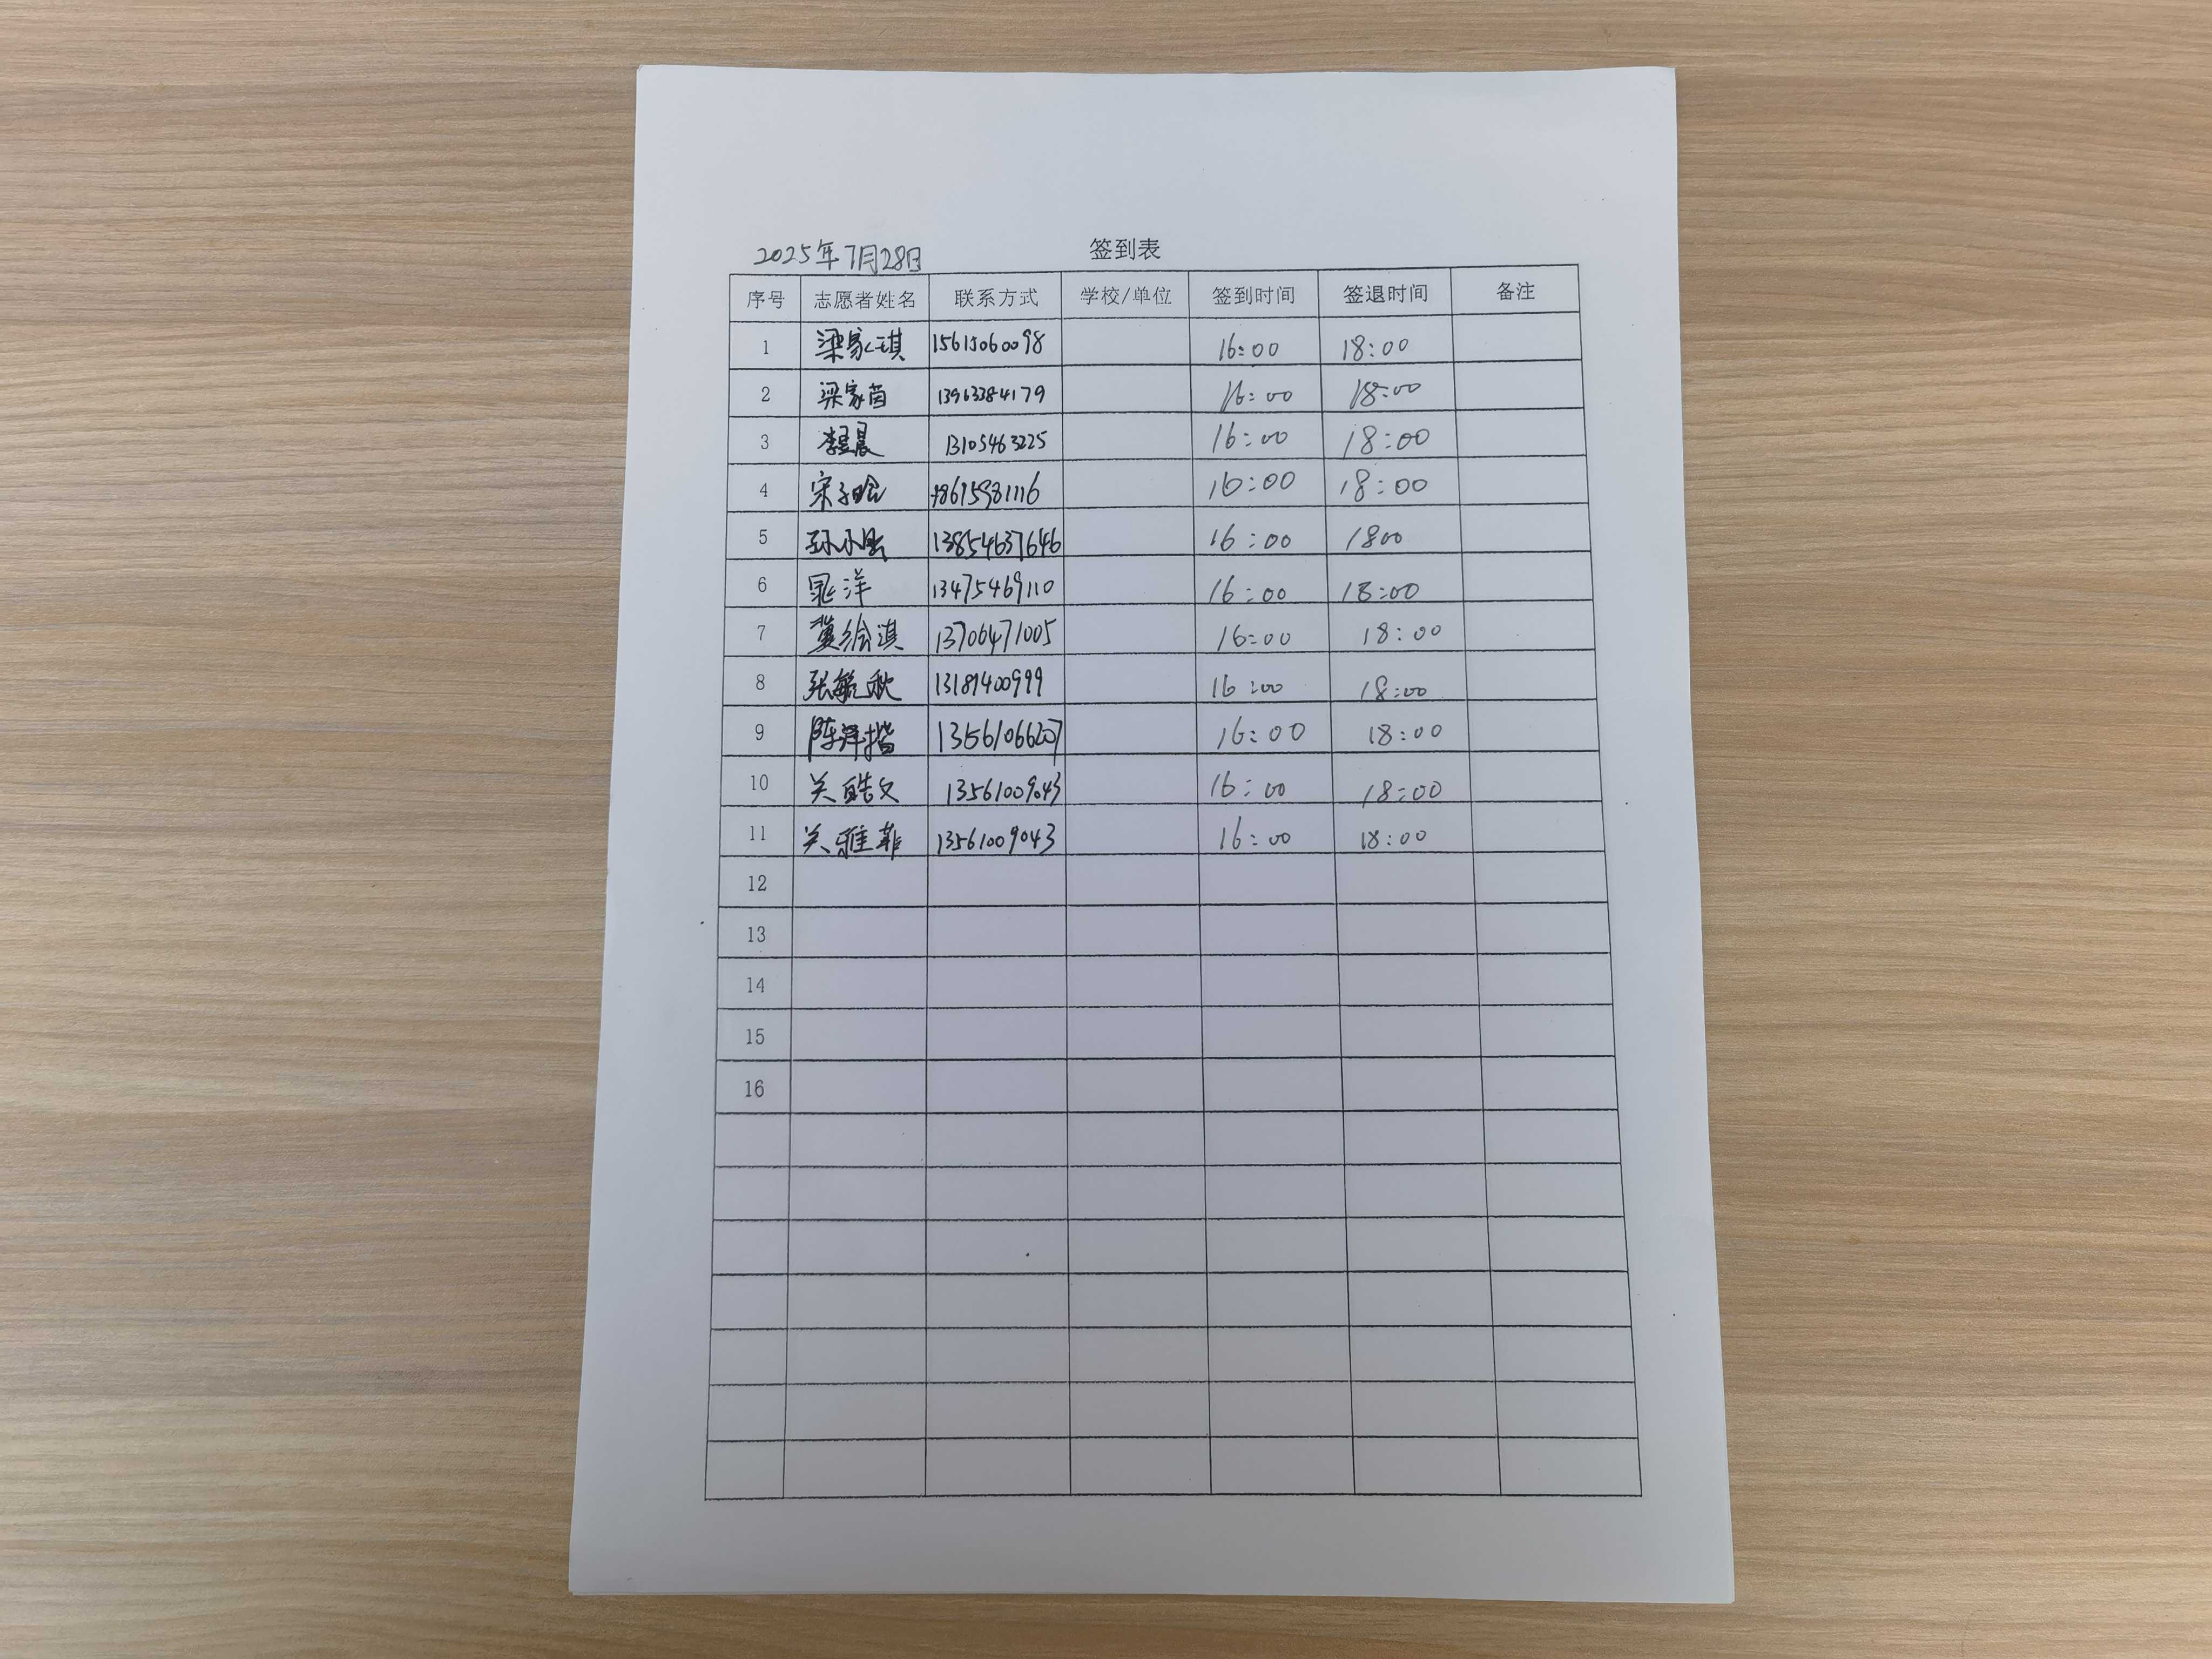 2025年7月28日 签到表
序号 志愿者姓名 联系方式 学校/单位 签到时间 签退时间 备注
1 梁家琪 15615060098 16:00 18:00
2 梁家茵 13963384179 16:00 18:00
3 13105463225 16:00 18:00
4 宋子晗 18615981116 16:00 18:00
5 孙小 13854637646 16:00 1800
6 晁洋 13475469110 16:00 18:00
7 冀绘淇 13706471005 16:00 18:00
8 张毓秋 13181400999 16:00 18:00
9 陈泽楷 13561066207 16:00 18:00
10 关皓文 13561009043 16:00 18:00
11 关雅菲 13561009043 16:00 18:00
12
13
14
15
16